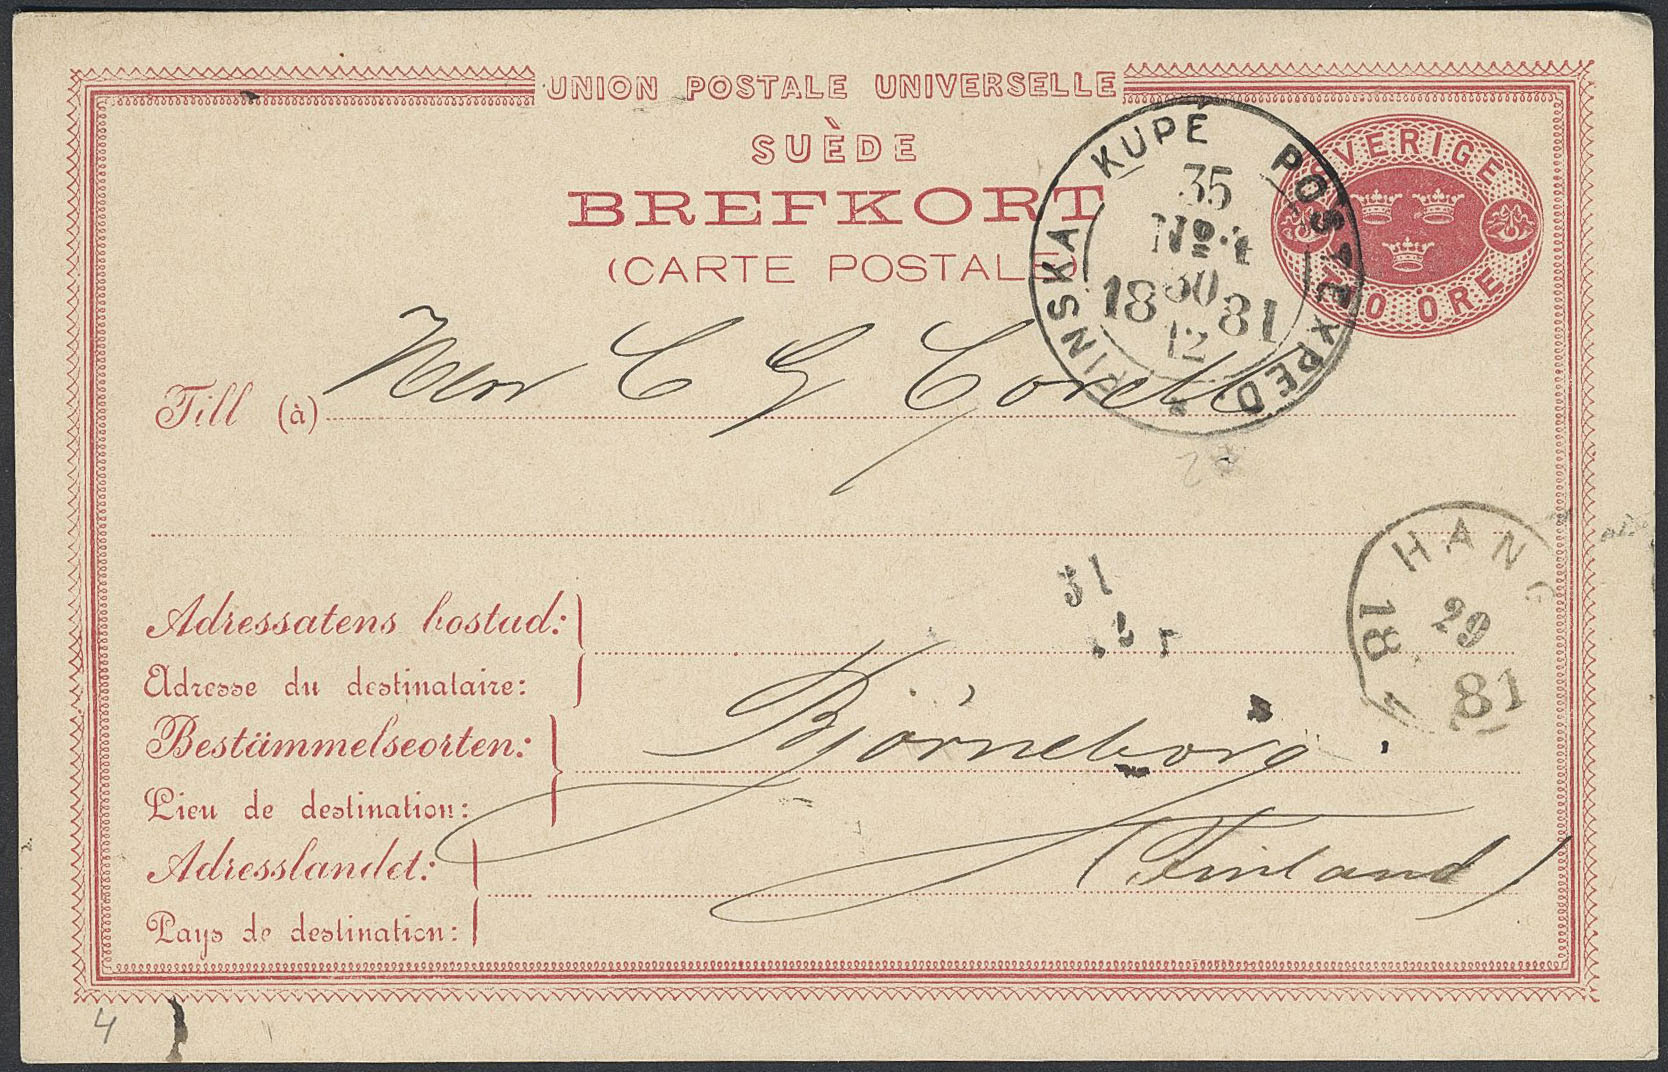 UNION POSTALE UNIVERSELLE
SUÈDE
BREFKORT
(CARTE POSTALE)
SVERIGE
10 ÖRE
FINSKA KUPÉ POSTEXPED.
35
No 4
30
18 81
12
Till (à) Herr C G
Adressatens bostad:
Adresse du destinataire:
31
HANG
29
18 81
Bestämmelseorten: Björneborg
Lieu de destination:
Adresslandet: (Finland)
Pays de destination:
4